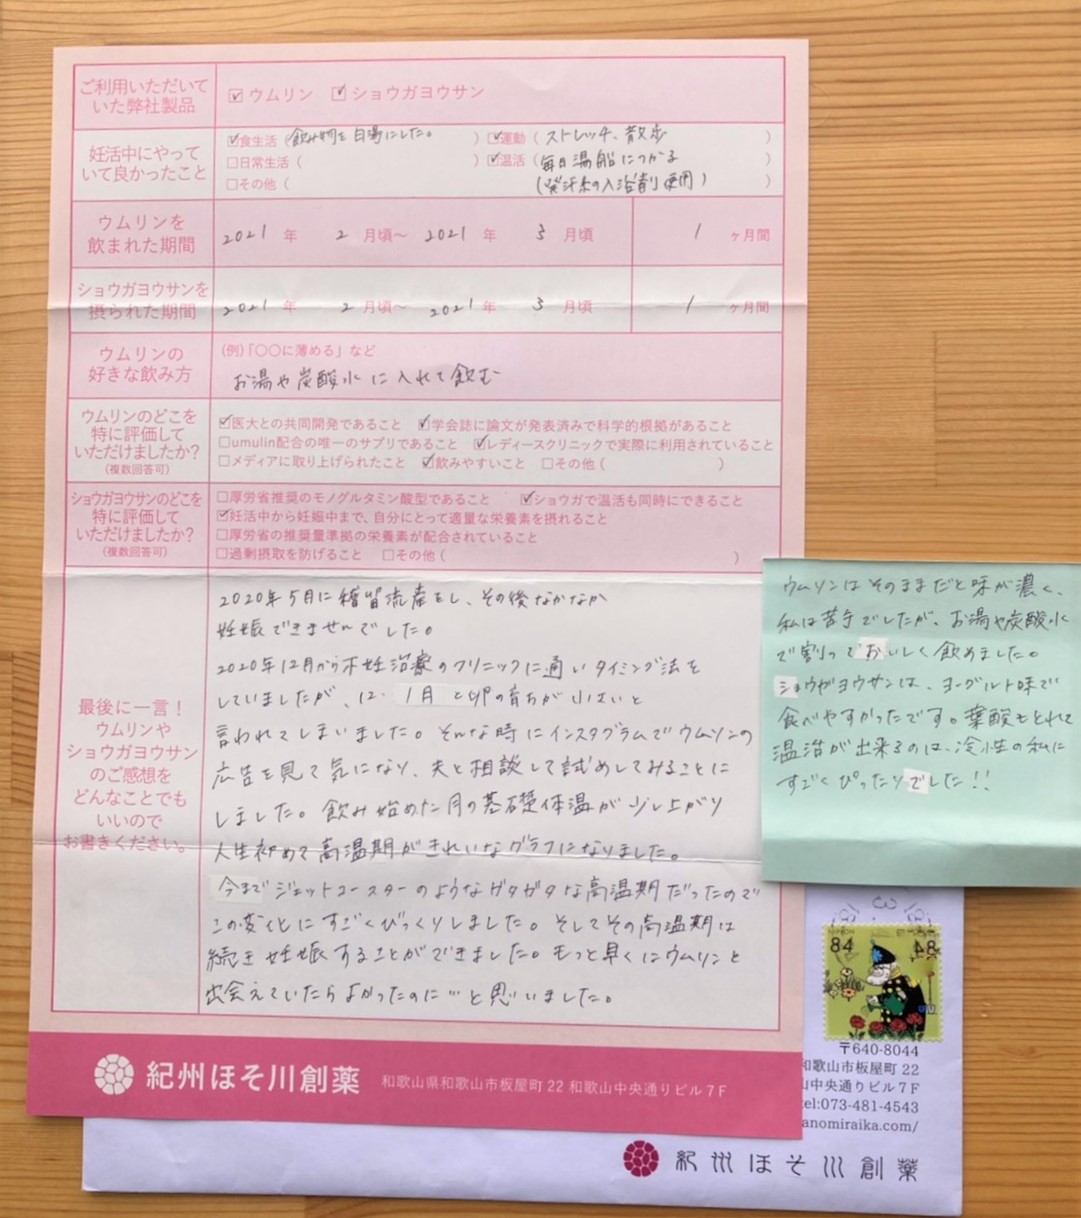 ご利用いただいて
いた弊社製品
☑ウムリン ☑ショウガヨウサン
妊活中にやって
いて良かったこと
☑食生活(飲み物を白湯にした。) ☑運動(ストレッチ、散歩)
□日常生活( ) ☑温活(毎日湯船につかる
□その他( (発汗系の入浴剤使用) )
ウムリンを
飲まれた期間
2021年 2月頃〜 2021年 3月頃 1ヶ月間
ショウガヨウサンを
摂られた期間
2021年 2月頃〜 2021年 3月頃 1ヶ月間
ウムリンの
好きな飲み方
(例)「〇〇に薄める」など
お湯や炭酸水に入れて飲む
ウムリンのどこを
特に評価して
いただけましたか?
(複数回答可)
☑医大との共同開発であること ☑学会誌に論文が発表済みで科学的根拠があること
□umulin配合の唯一のサプリであること ☑レディースクリニックで実際に利用されていること
□メディアに取り上げられたこと ☑飲みやすいこと □その他( )
ショウガヨウサンのどこを
特に評価して
いただけましたか?
(複数回答可)
□厚労省推奨のモノグルタミン酸型であること ☑ショウガで温活も同時にできること
☑妊活中から妊娠中まで、自分にとって適量な栄養素を摂れること
□厚労省の推奨量準拠の栄養素が配合されていること
□過剰摂取を防げること □その他( )
最後に一言!
ウムリンや
ショウガヨウサン
のご感想を
どんなことでも
いいので
お書きください。
2020年5月に稽留流産をし、その後なかなか
妊娠できませんでした。
2020年12月から不妊治療のクリニックに通いタイミング法を
していましたが、12、1月と卵の育ちが小さいと
言われてしまいました。そんな時にインスタグラムでウムリンの
広告を見て気になり、夫と相談して試めしてみることに
しました。飲み始めた月の基礎体温が少し上がり
人生初めて高温期がきれいなグラフになりました。
今までジェットコースターのようなガタガタな高温期だったので
この変化にすごくびっくりしました。そしてその高温期は
続き妊娠することができました。もっと早くにウムリンと
出会えていたらよかったのに…と思いました。
ウムリンはそのままだと味が濃く、
私は苦手でしたが、お湯や炭酸水
で割っておいしく飲めました。
ショウガヨウサンは、ヨーグルト味で
食べやすかったです。葉酸もとれて
温活が出来るのは、冷え性の私に
すごくぴったりでした!!
紀州ほそ川創薬 和歌山県和歌山市板屋町22 和歌山中央通りビル7F
NIPPON
84
〒640-8044
和歌山市板屋町22
山中央通りビル7F
tel:073-481-4543
anomiraika.com/
紀州ほそ川創薬